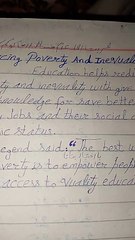 cing Poverty And Inequali
Education helps redu
ty and inequality with give
knowledge for save better
Jobs and their social
ic status.
egend said: "The best w
overty is to empower
access to Quality educa